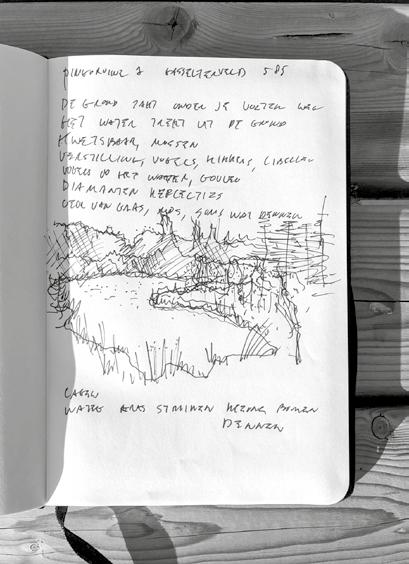 PINGORUINE 2 GASSELTERVELD 585
DE GROND ZAKT ONDER JE VOETEN WEG
HET WATER TREKT UIT DE GROND
KWETSBAAR, MOSSEN
VERSTILLING, VOGELS, KIKKERS, LIBELLEN
WOLLS OP HET WATER, GOUDEN
DIAMANTEN REFLECTIES
GEUR VAN GRAS, MOS, SOMS WAT DENNEN
LAGEN
WATER GRAS STRUIKEN BOMEN
DENNEN